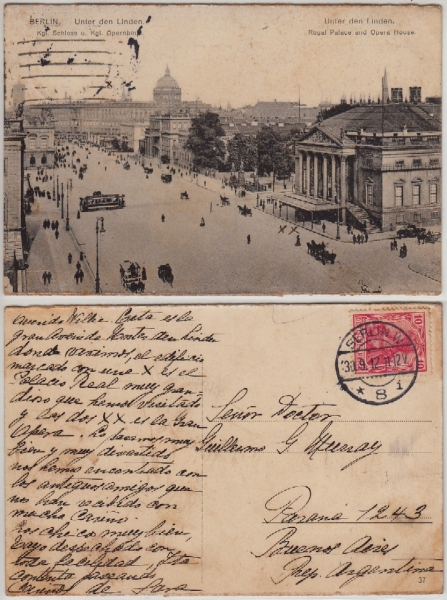 BERLIN. Unter den Linden.
Kgl. Schloss u. Kgl. Opernhaus
Unter den Linden.
Royal Palace and Opera House.
X
XX
Querido Willie Esta es la
gran Avenida Unter den Linden
donde vivimos, el edificio
marcado con una X es el
Palacio Real muy gran
dioso que hemos visitado
y las dos XX es la Gran
Opera. Lo pasamos muy
bien y muy divertidos
nos hemos encontrado con
los antiguos amigos que
nos han recibido con
mucho cariño
Los chicos muy bien,
todo la felicidad, Esta
contenta paseando
cariños de Sara
BERLIN W.
30.9.12. 11-12V.
* 8 i
10
Señor Doctor
Guillermo G. Murray
Paraná 1243
Buenos Aires
Rep. Argentina
37